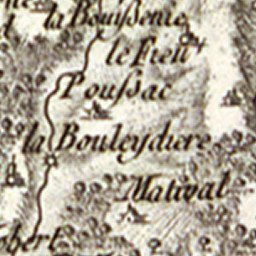 la Bouſſenie
le Fieu
Pouſsac
la Bouleydiere
Mativat
bert